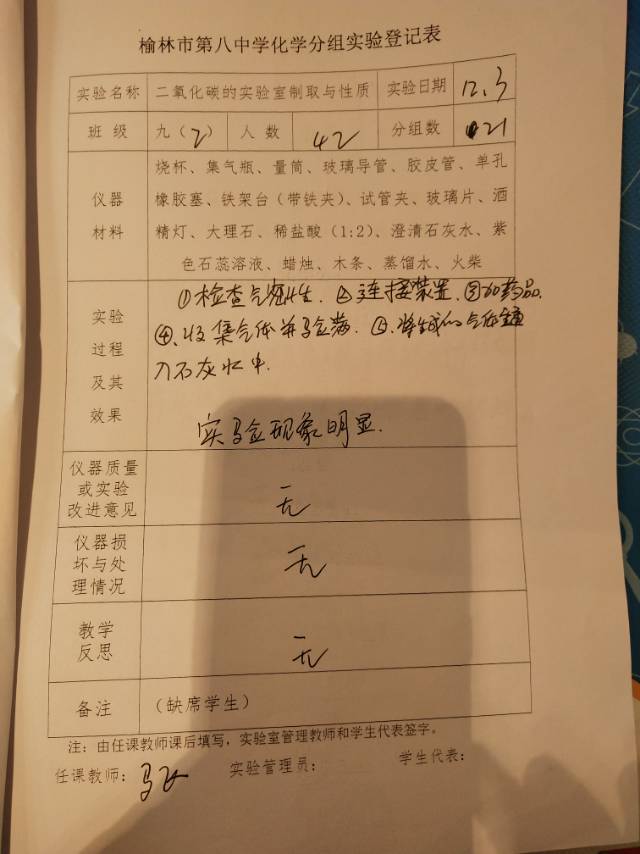 榆林市第八中学化学分组实验登记表
实验名称 二氧化碳的实验室制取与性质 实验日期 12.3
班 级 九（2） 人 数 42 分组数 21
仪器材料
烧杯、集气瓶、量筒、玻璃导管、胶皮管、单孔
橡胶塞、铁架台（带铁夹）、试管夹、玻璃片、酒
精灯、大理石、稀盐酸（1:2）、澄清石灰水、紫
色石蕊溶液、蜡烛、木条、蒸馏水、火柴
实验
过程
及其
效果
①检查气密性.②连接装置.③加药品.
④.收集气体并验满.⑤.将生成的气体通
入石灰水中.
实验现象明显.
仪器质量
或实验
改进意见
无
仪器损
坏与处
理情况
无
教学
反思
无
备注 （缺席学生）
注：由任课教师课后填写，实验室管理教师和学生代表签字。
任课教师：马 实验管理员： 学生代表：